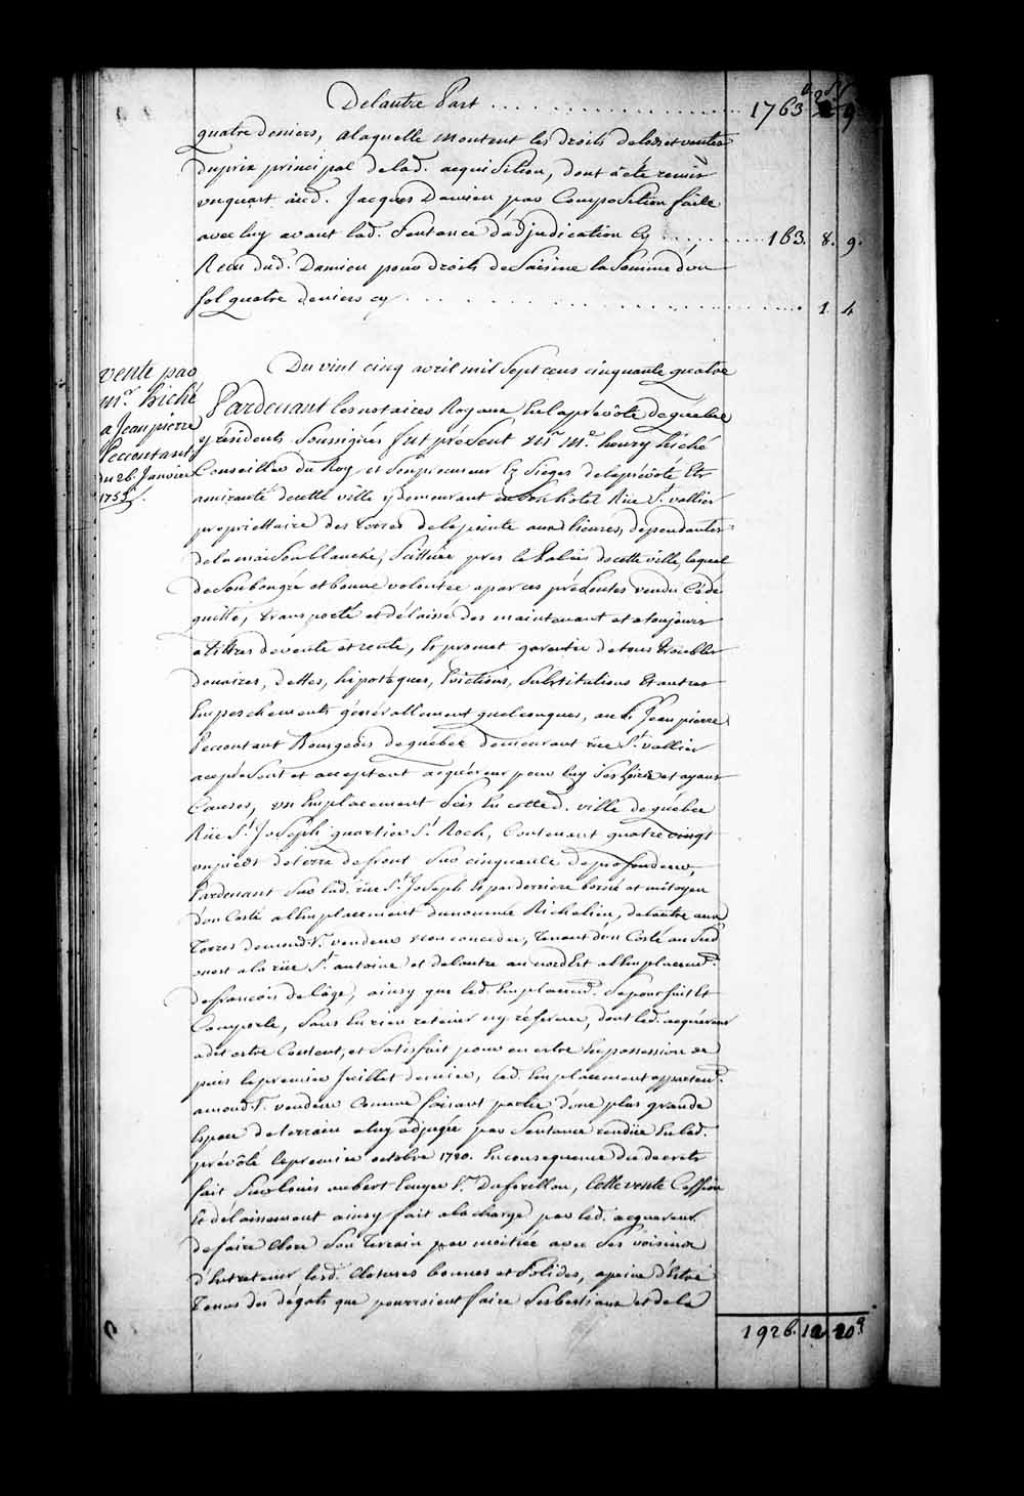 Delautre Part . . . . . . . . . . . . . . 1763 2 9
quatre deniers, alaquelle montent les droits delods et ventes
du prix principal delad. acquisition, dont a été remis
un quart aud. Jacques Damien par Composition faite
avec luy avant lad. Sentence d'adjudication Cy . . . . . . 163. 8. 9.
Recu dud. Damien pour droits de Saisine la Somme d'un
sol quatre deniers cy . . . . . . . . . . . . . . 1 4
vente par
mr. hiché
a Jean pierre
Peccontant
du 26. Janvier
Du vint cinq avril mil Sept cens cinquante quatre
Pardevant les notaires Royaux En la prévôté de quebec
y résidents Soussignés fut présent Mr. henry hiché
Conseiller du Roy et Son procureur Es Sieges de la prévôté Et
amirauté decette ville y demeurant en Son hôtel Rüe St. vallier
propriettaire des terres de la pointe aux lievres, dépendantes
de la maison blanche, Scittuée pres le Palais de cette ville, lequel
de Son bon gré et bonne volontée a par ces présentes vendu Cédé
quitté, transporté et délaissé des maintenant et a toujours
a tittres de vente et rente, Et promet garentir de tous troubles
douaires, dettes, hipotéques, Evictions, Substitutions Et autres
Empeschements générallement quelconques, au S. Jean pierre
Peccontant Bourgeois de quebec demeurant rüe St. vallier
a ce présent et acceptant acquéreur pour luy Ses hoirs et ayans
Causes, un Emplacement Sis En cette d. ville de québec
Rüe St. Joseph quartier St. Roch, Contenant quatre vingt
un pieds de terre de front Sur cinquante de profondeur,
Pardevant Sur lad. rüe St. Joseph Et par derriere borné et mitoyen
d'un Costé a l'Emplacement du nommé Richelieu, de l'autre aux
Terres de mond. Sr. vendeur non concedées, Tenant d'un Costé au Sud
ouest a la rüe St. antoine et de l'autre au nord Est a l'Emplacemt.
de francois delage, ainsy que led. Emplacemt. Se poursuit Et
Comporte, Sans En rien retenir ny réserver, dont led. acquéreur
a dit estre Content, et Satisfait pour en estre En possession de
puis le premier Juillet dernier, led. Emplacement appartent.
a mond. Sr. vendeur Comme faisant partie d'une plus grande
Espace de terrain a luy adjugée par Sentence rendüe En lad.
prévôté le premier octobre 1720. En consequence du decret
fait Sur louis aubert Ecuyer Sr. Duforillon, Cette vente Cession
Et délaissement ainsy fait a la charge par led. acquereur
de faire Clore Son Terrain par moitiée avec Ses voisins
d'Entretenir lesd. Clotures bonnes et Solides, a peine d'Estre
Tenus des dégats que pourroient faire Ses bestiaux et de la
1926. 12 10